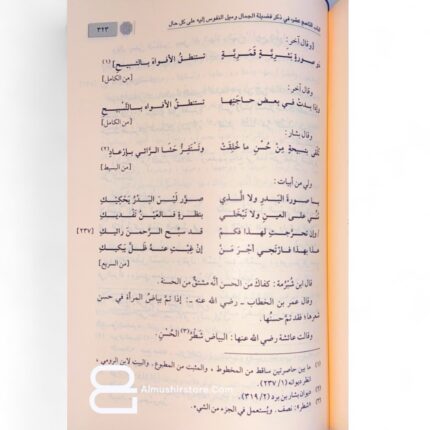 الباب التاسع عشر: في ذكر فضيلة الجمال وميل النفوس إليه على كل حال
٣٢٣
[وقال آخر:
ذو صورةٍ بَشَريَّةٍ قَمَريَّةٍ تستنطقُ الأفواهَ بالتسبيحِ] (١)
[من الكامل]
وقال آخر:
وإذا بدتْ في بعض حاجتِها تستنطقُ الأفواه بالتَّسْبيحِ
[من الكامل]
وقال بشار:
تُلقى بتسبيحةٍ مِنْ حُسْنِ ما خُلِقَتْ وتَستَفِزُّ حَشا الرَّائي بإرْعادِ (٢)
[من البسيط]
ولي من أبيات:
يا صورةَ البَدرِ ولا والَّذي صوَّر لَيْسَ البَدْرُ يَحْكيكِ
مُنِّي على العينِ ولا تَبْخَلي بنظرةٍ فالعَيْنُ تَفْديكِ
وإن تحرَّجتِ لهذا فكم قد سَبَّحَ الرَّحمنَ رائيكِ [٢٣٧]
هذا بهذا فارتَجي أجرَ مَنْ إنْ غِبْتِ عنه ظلَّ يَبكيكِ
[من السريع]
قال ابن شُبْرُمة: كفاكَ من الحسن أنَّه مشتقٌّ من الحسنة.
وقال عمر بن الخطاب - رضي الله عنه -: إذا تمَّ بياضُ المرأة في حسن
شعرها؛ فقد تمَّ حسنُها.
وقالت عائشة رضي الله عنها: البياض شَطْرُ (٣) الحُسْنِ.
(١) ما بين حاصرتين ساقط من المخطوط، والمثبت من المطبوع. والبيت لابن الرومي،
انظر ديوانه (١/ ٢٣٧).
(٢) ديوان بشار بن برد (٢/ ٣١٩).
(٣) «شطر»: نصف. ويُستعمل في الجزء من الشيء.
Almushirstore.Com